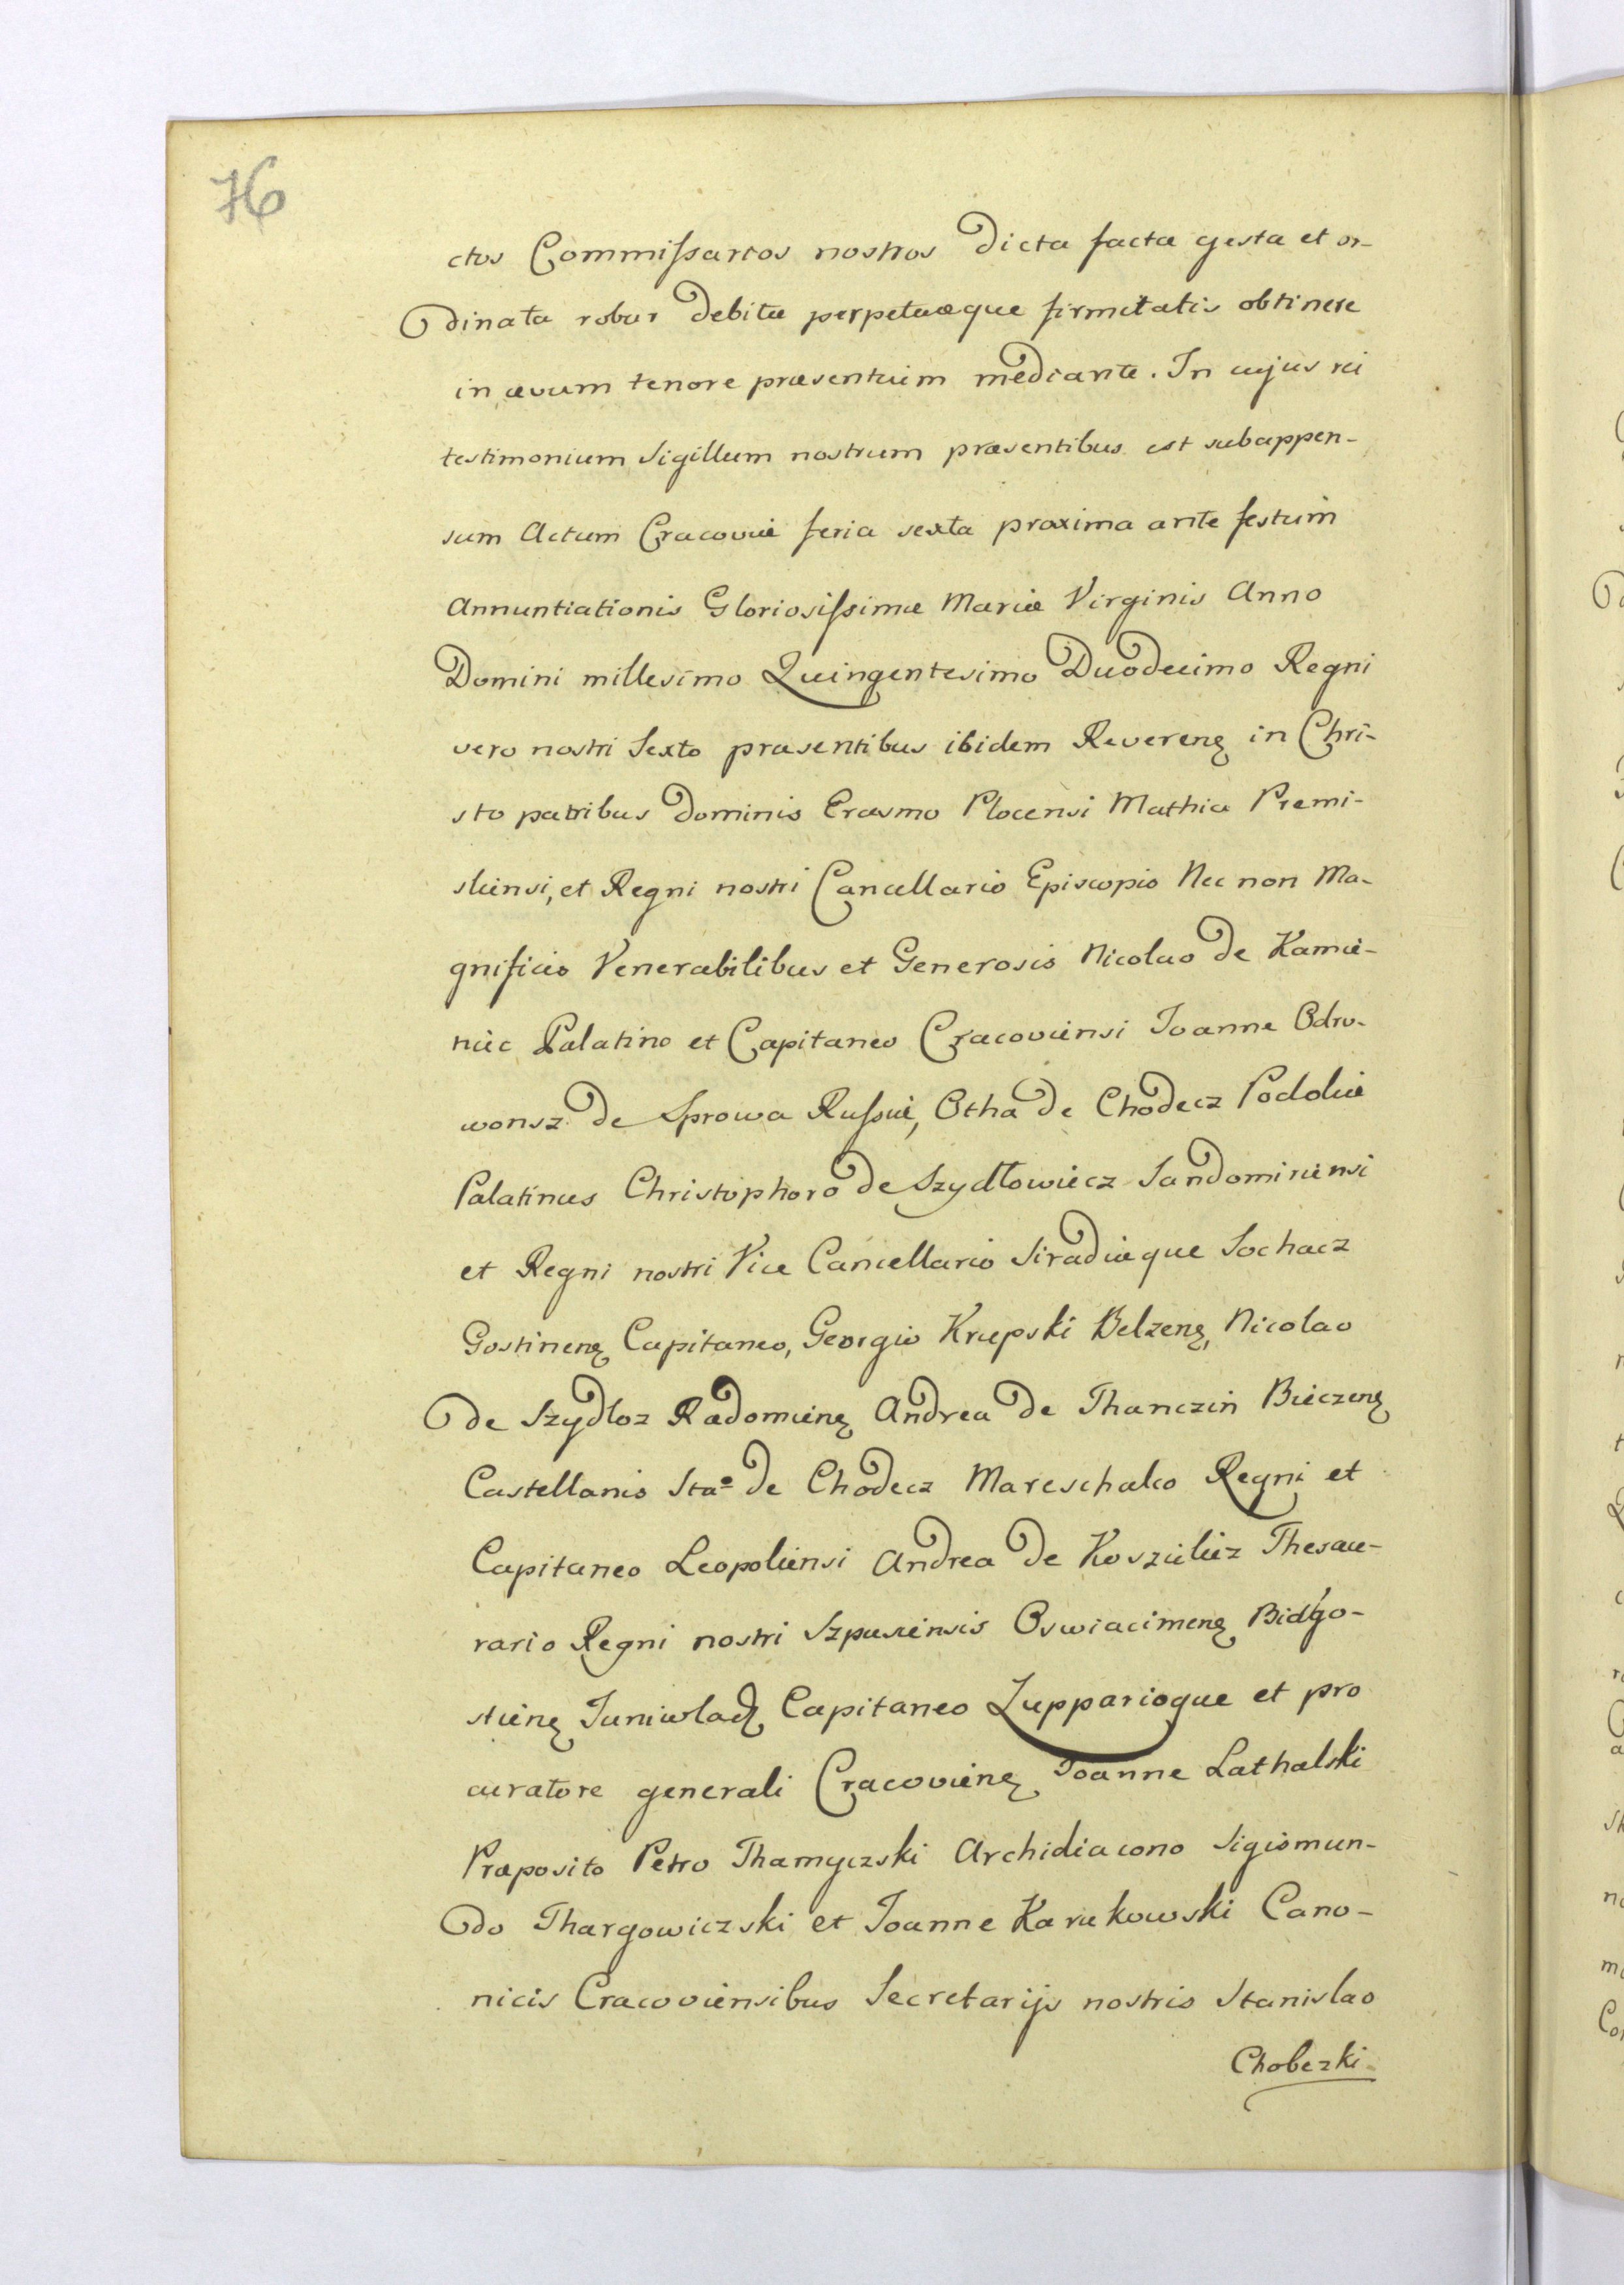 76
ctos Commissarios nostros dicta facta gesta et or-
dinata robur debitæ perpetuæque firmitatis obtinere
in ævum tenore præsentium mediante. In cujus rei
testimonium Sigillum nostrum præsentibus est subappen-
sum Actum Cracoviæ feria sexta proxima ante festum
Annuntiationis Gloriosissimæ Mariæ Virginis Anno
Domini millesimo Quingentesimo Duodecimo Regni
vero nostri Sexto præsentibus ibidem Reveren. in Chri-
sto patribus Dominis Erasmo Plocensi Mathia Premi-
sliensi, et Regni nostri Cancellario Episcopis Nec non Ma-
gnificis Venerabilibus et Generosis Nicolao de Kamie-
niec Palatino et Capitaneo Cracoviensi Joanne Odro-
wonsz de Sprowa Russiæ, Otha de Chodecz Podoliæ
Palatinus Christophoro de Szydłowiecz Sandomiriensi
et Regni nostri Vice Cancellario Siradiæque Sochacz
Gostinen. Capitaneo, Georgio Krupski Belzen. Nicolao
de Szydloz Radomien. Andrea de Thanczin Bieczen.
Castellanis Stao de Chodecz Mareschalco Regni et
Capitaneo Leopoliensi Andrea de Koszieliez Thesau-
rario Regni nostri Szpusiensis Oswiacimen. Bidgo-
stien. Juniwlad. Capitaneo Zupparioque et pro
curatore generali Cracovien. Joanne Lathalski
Præposito Petro Thamyczski Archidiacono Sigismun-
do Thargowiczski et Joanne Karukowski Cano-
nicis Cracoviensibus Secretarijs nostris Stanislao
Chobezki